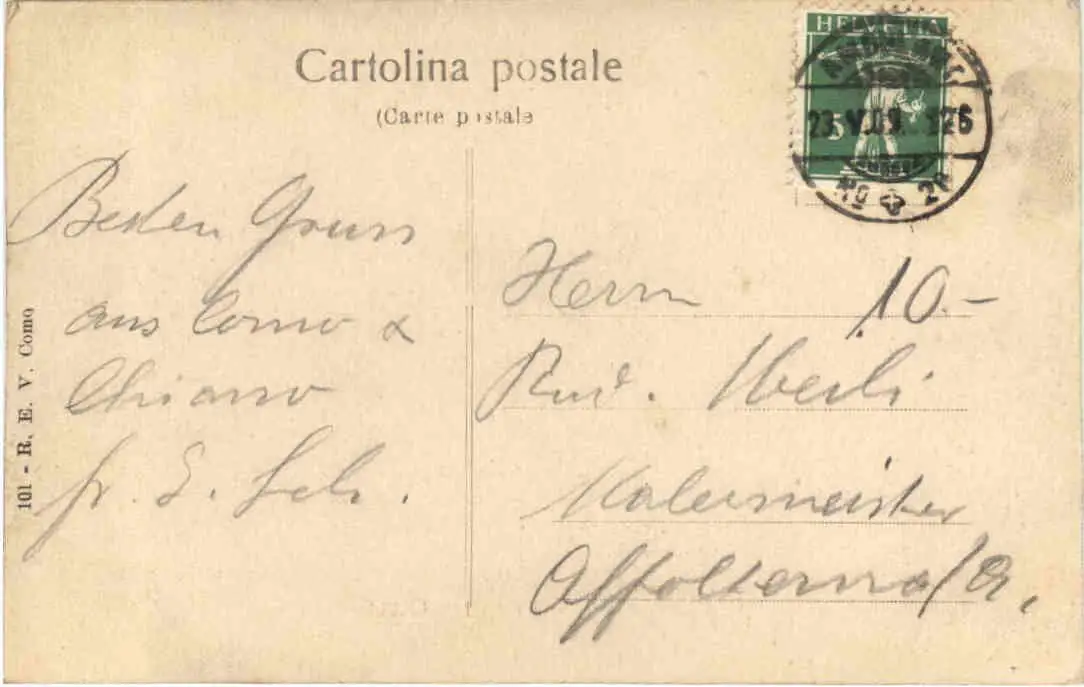 Cartolina postale
(Carte postale
HELVETIA
5
23. V. 09.
No
Besten Gruss
aus Como &
Chiasso
fr. E. Sch.
101 - R. E. V. Como
Herrn
10.-
Rud.
Malermeister
Affoltern a/A.